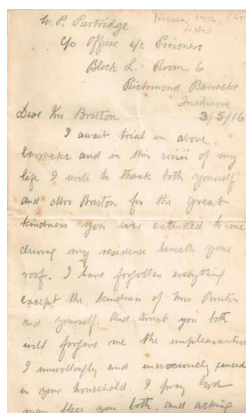 W. P. Partridge
c/o Officer i/c Prisoners
Block L. Room 6
Richmond Barracks
Inchicore
3/5/16
Dear Mr Bruton
I await trial in above
barracks and in this crisis of my
life I wish to thank both yourself
and Mrs Bruton for the great
kindness you ever extended to me
during my residence beneath your
roof. I have forgotten everything
except the kindness of Mrs Bruton
and yourself. And trust you both
will forgive me the unpleasantness
I unwillingly and unconsciously caused
in your household. I pray God
may bless you both and asking